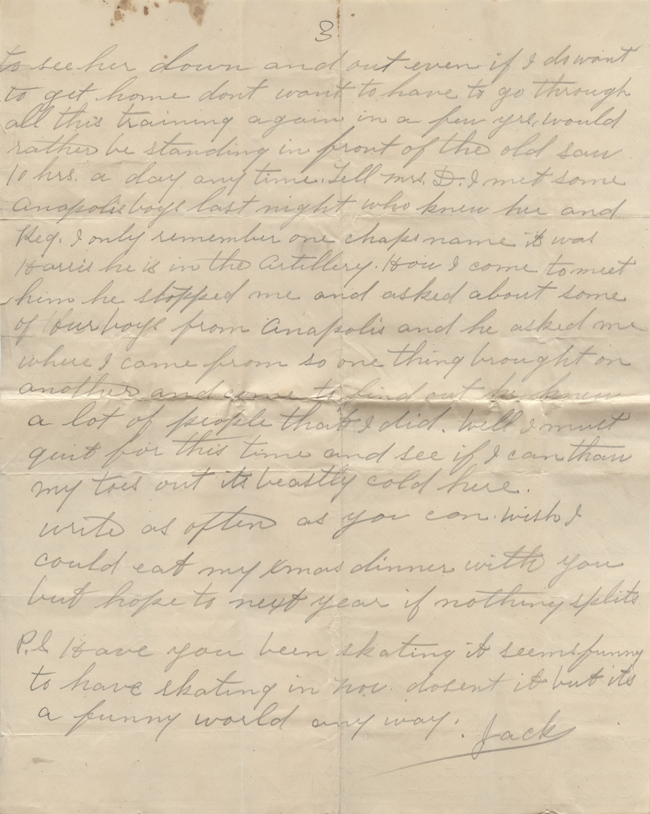 3
to see her down and out even if I do want
to get home dont want to have to go through
all this training again in a few yrs, would
rather be standing in front of the old saw
10 hrs. a day any time. Tell Mrs. D. I met some
Anapolis boys last night who knew her and
Reg. I only remember one chaps name it was
Harris he is in the Artillery. How I come to meet
him he stopped me and asked about some
of our boys from Anapolis and he asked me
where I came from so one thing brought on
another and come to find out he knew
a lot of people that I did. Well I must
quit for this time and see if I can thaw
my toes out its beastly cold here.
write as often as you can. wish I
could eat my xmas dinner with you
but hope to next year if nothing splits
P.S Have you been skating it seems funny
to have skating in Nov. dosent it but its
a funny world any way.
Jack